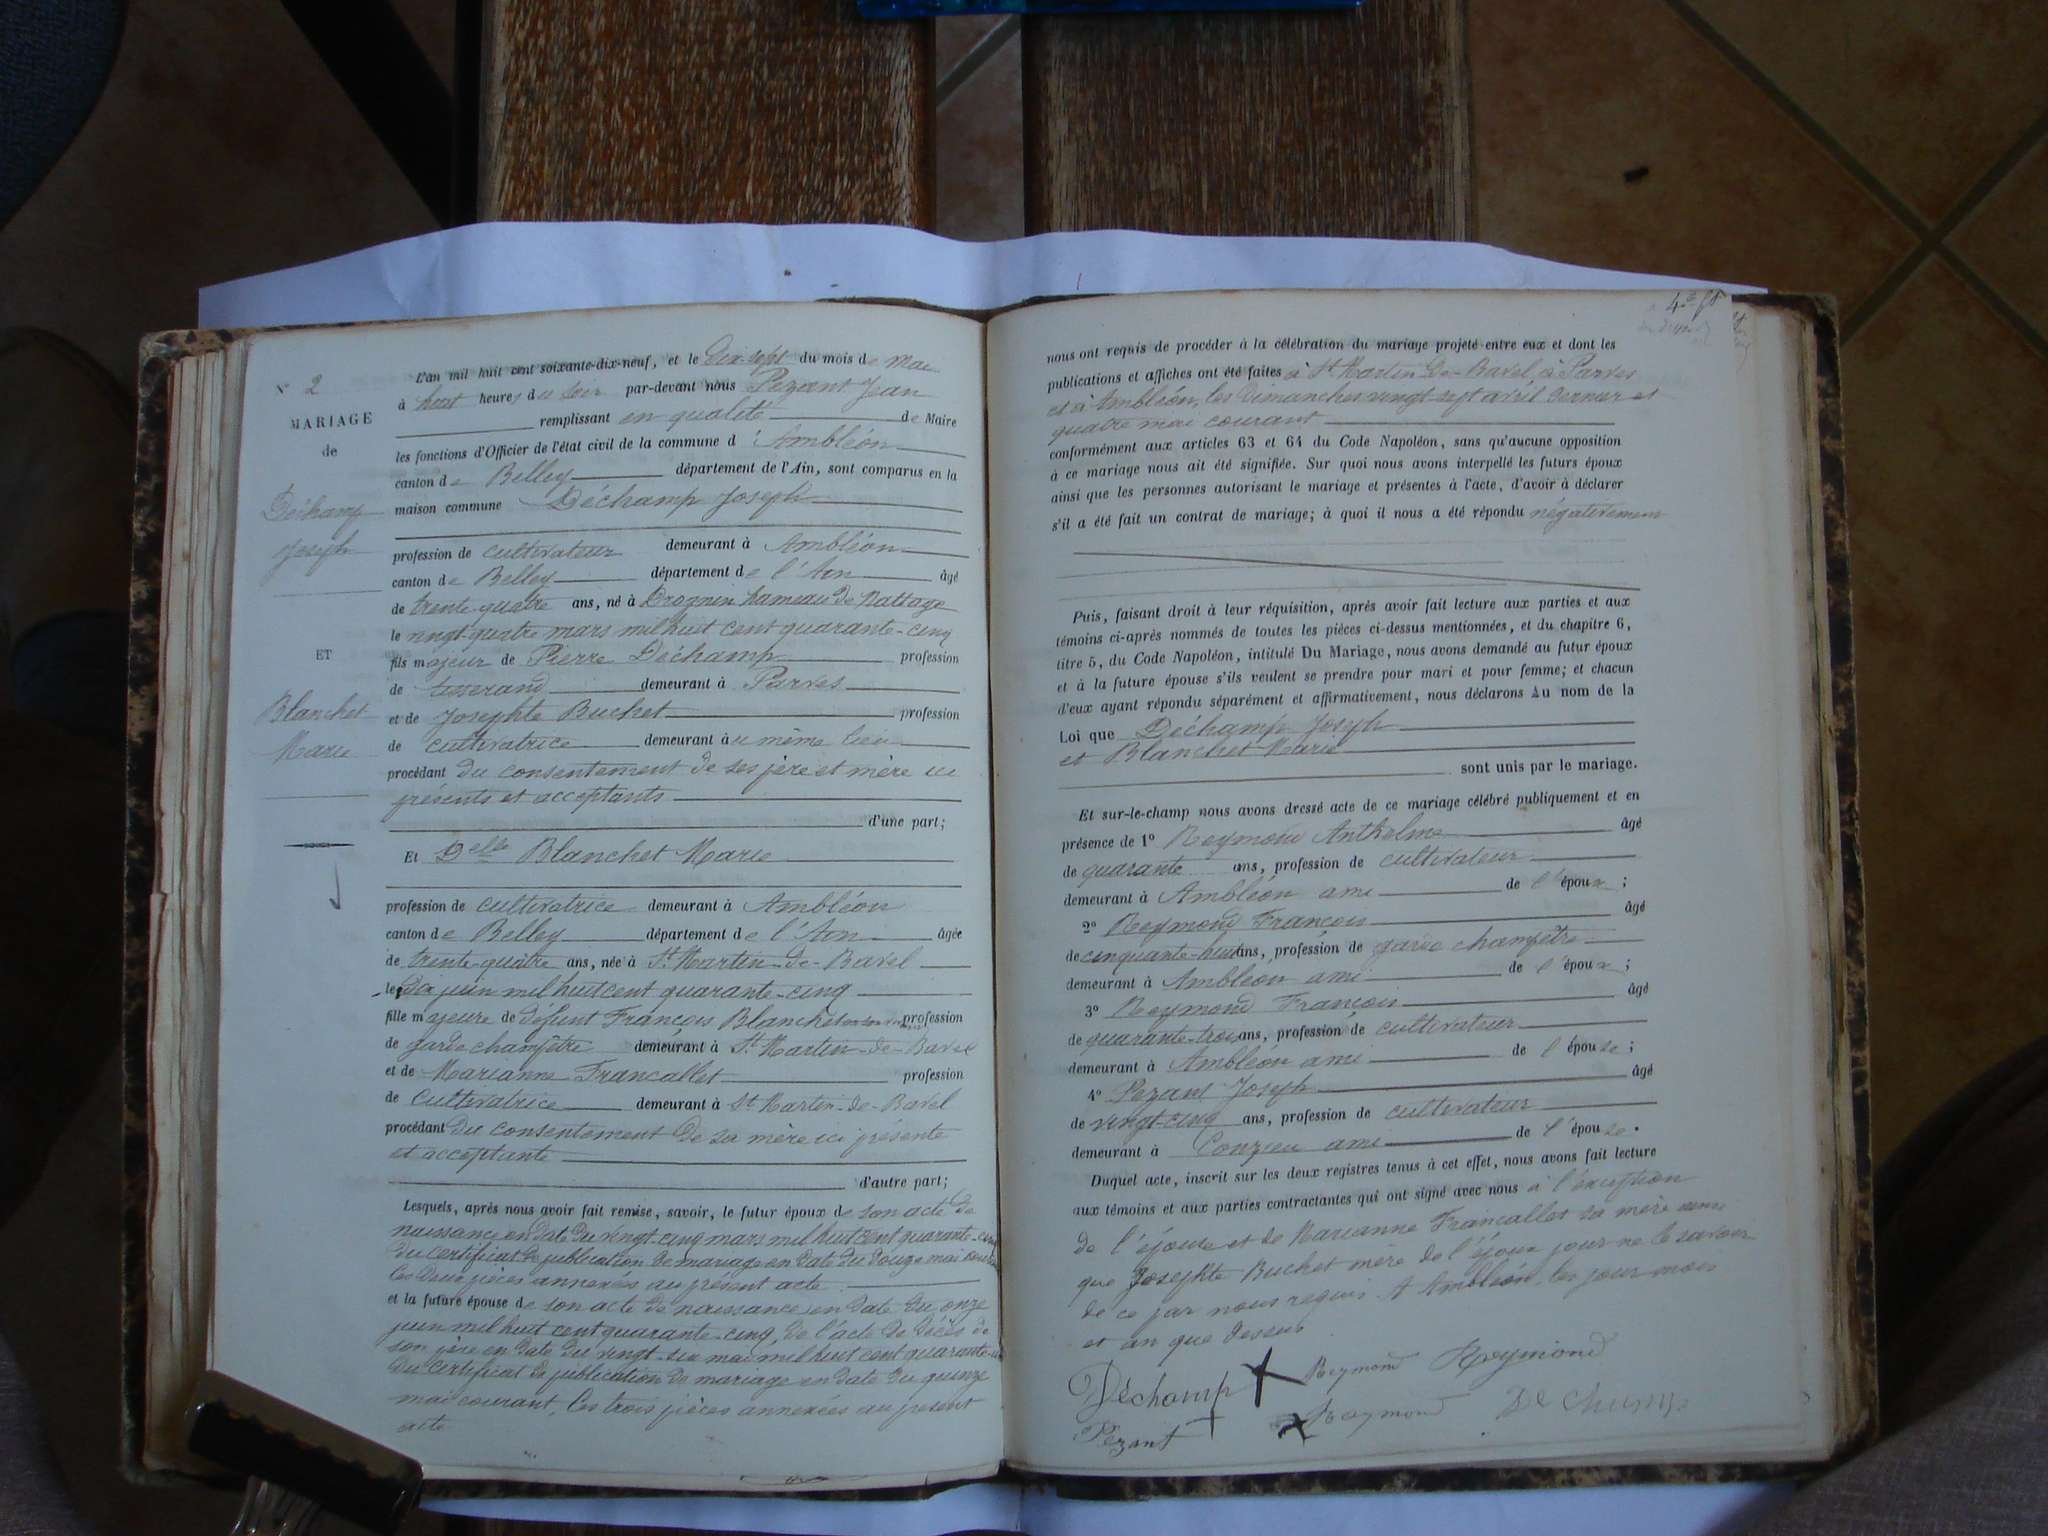 N° 2
MARIAGE
de
Déchamp
Joseph
ET
Blanchet
Marie
L'an mil huit cent soixante-dix-neuf, et le Dix-sept du mois de Mai
à huit heures du soir par-devant nous Pezant Jean
remplissant en qualité de Maire
les fonctions d'Officier de l'état civil de la commune d'Ambléon
canton de Belley département de l'Ain, sont comparus en la
maison commune Déchamp Joseph
profession de cultivateur demeurant à Ambléon
canton de Belley département de l'Ain âgé
de trente-quatre ans, né à hameau de Nattage
le vingt-quatre mars mil huit cent quarante-cinq
fils majeur de Pierre Déchamp profession
de tisserand demeurant à Parves
et de Josephte Buchet profession
de cultivatrice demeurant au même lieu
procédant du consentement de ses père et mère ici
présents et acceptants
d'une part;
Et Delle Blanchet Marie
profession de cultivatrice demeurant à Ambléon
canton de Belley département de l'Ain âgée
de trente-quatre ans, née à St Martin-de-Bavel
le dix juin mil huit cent quarante-cinq
fille majeure de défunt François Blanchet profession
de garde champêtre demeurant à St Martin-de-Bavel
et de Marianne Francallet profession
de cultivatrice demeurant à St Martin-de-Bavel
procédant du consentement de sa mère ici présente
et acceptante
d'autre part;
Lesquels, après nous avoir fait remise, savoir, le futur époux de son acte de
naissance en date du vingt-cinq mars mil huit cent quarante-cinq
du certificat de publication de mariage en date du douze mai courant
les deux pièces annexées au présent acte
et la future épouse de son acte de naissance en date du onze
juin mil huit cent quarante-cinq, de l'acte de décès de
son père en date du vingt-six mai mil huit cent quarante-
du certificat de publication de mariage en date du quinze
mai courant, les trois pièces annexées au présent
acte
nous ont requis de procéder à la célébration du mariage projeté entre eux et dont les
publications et affiches ont été faites à St Martin-de-Bavel, à Parves
et à Ambléon, les dimanches vingt-sept avril dernier et
quatre mai courant
conformément aux articles 63 et 64 du Code Napoléon, sans qu'aucune opposition
à ce mariage nous ait été signifiée. Sur quoi nous avons interpellé les futurs époux
ainsi que les personnes autorisant le mariage et présentes à l'acte, d'avoir à déclarer
s'il a été fait un contrat de mariage; à quoi il nous a été répondu négativement
Puis, faisant droit à leur réquisition, après avoir fait lecture aux parties et aux
témoins ci-après nommés de toutes les pièces ci-dessus mentionnées, et du chapitre 6,
titre 5, du Code Napoléon, intitulé Du Mariage, nous avons demandé au futur époux
et à la future épouse s'ils veulent se prendre pour mari et pour femme; et chacun
d'eux ayant répondu séparément et affirmativement, nous déclarons Au nom de la
Loi que Déchamp Joseph
et Blanchet Marie
sont unis par le mariage.
Et sur-le-champ nous avons dressé acte de ce mariage célébré publiquement et en
présence de 1° Reymond Anthelme âgé
de quarante ans, profession de cultivateur
demeurant à Ambléon ami de l'époux;
2° Reymond François âgé
de cinquante-huit ans, profession de garde champêtre
demeurant à Ambléon ami de l'époux;
3° Reymond François âgé
de quarante-trois ans, profession de cultivateur
demeurant à Ambléon ami de l'épouse;
4° Pezant Joseph âgé
de vingt-cinq ans, profession de cultivateur
demeurant à Conzieu ami de l'épouse.
Duquel acte, inscrit sur les deux registres tenus à cet effet, nous avons fait lecture
aux témoins et aux parties contractantes qui ont signé avec nous à l'exception
de l'épouse et de Marianne Francallet sa mère
que Josephte Buchet mère de l'époux pour ne le savoir
de ce par nous requis. A Ambléon, les jour mois
et an que dessus
Déchamp Reymond Reymond
Pezant Reymond De Champ